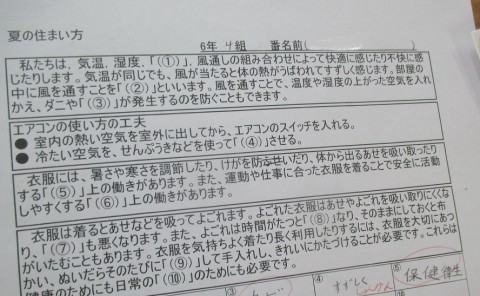 夏の住まい方
6年 4組 番名前(
私たちは、気温、湿度、「(①)」、風通しの組み合わせによって快適に感じたり不快に感
じたりします。気温が同じでも、風が当たると体の熱がうばわれてすずしく感じます。部屋の
中に風を通すことを「(②)」といいます。風を通すことで、温度や湿度の上がった空気を入れ
かえ、ダニや「(③)」が発生するのを防ぐこともできます。
エアコンの使い方の工夫
● 室内の熱い空気を室外に出してから、エアコンのスイッチを入れる。
● 冷たい空気を、せんぷうきなどを使って「(④)」させる。
衣服には、暑さや寒さを調節したり、けがを防ぶせいだり、体から出るあせを吸い取ったり
する「(⑤)」上の働きがあります。また、運動や仕事に合った衣服を着ることで安全に活動
しやすくする「(⑥)」上の働きがあります。
衣服は着るとあせなどを吸ってよごれます。よごれた衣服はあせやよごれを吸い取りにくくな
り、「(⑦)」も悪くなります。また、よごれは時間がたつと「(⑧)」なり、そのままにしておくと布
がいたむこともあります。衣服を気持ちよく着たり長く利用したりするには、衣服を大切にあつ
かい、ぬいだらそのたびに「(⑨)」して手入れし、きれいにかたづけることが必要です。これらは
健康のためにも日常の「(⑩)」のためにも必要です。
③
④
すずしく
⑤
保健衛生